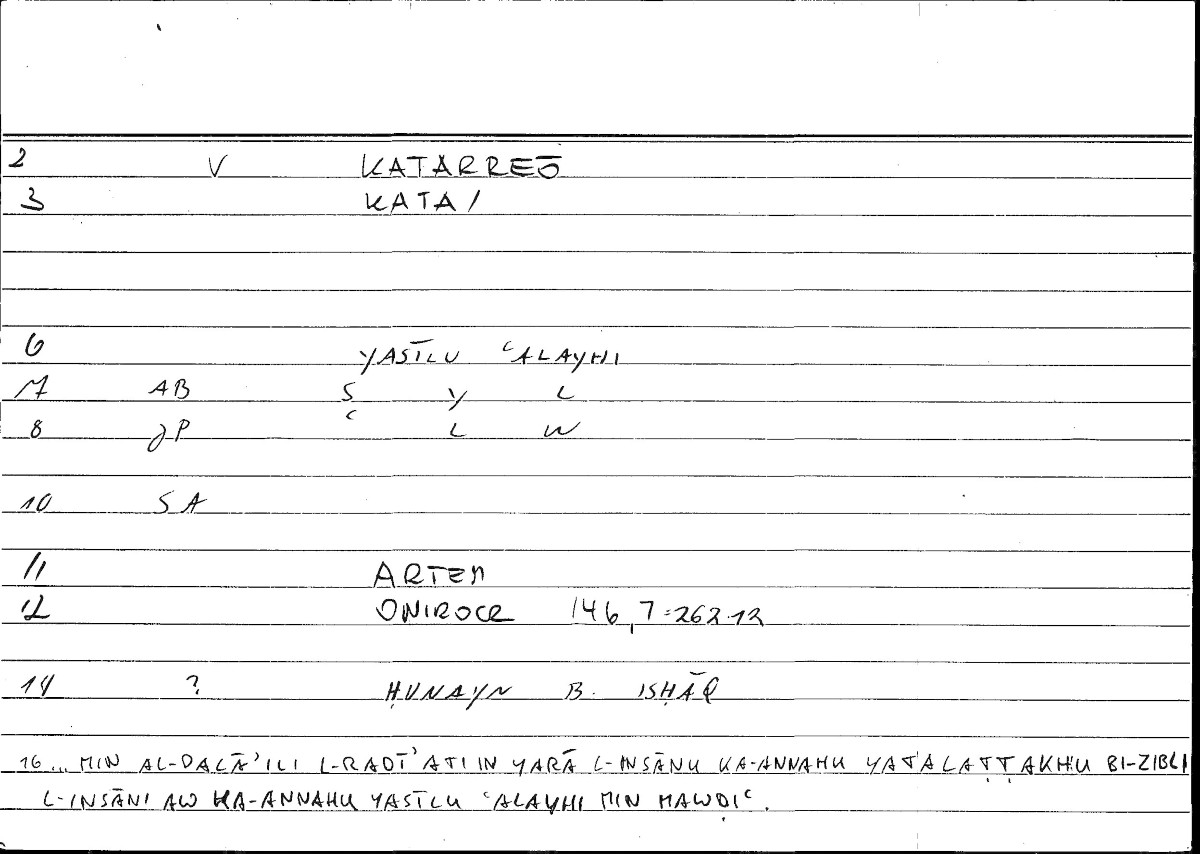 2 V KATARREŌ
3 KATA/
6 YASĪLU ʿALAYHI
7 AB S Y L
8 JP ʿ L W
10 SA
11 ARTEM
12 ONIROCR 146,7=262.12
14 ? ḤUNAYN B. ISḤĀQ
16 ... MIN AL-DALĀʾILI L-RADĪʾATI IN YARĀ L-INSĀNU KA-ANNAHU YATALAṬṬAKHU BI-ZIBLI
L-INSĀNI AW KA-ANNAHU YASĪLU ʿALAYHI MIN MAWḌIʿ.